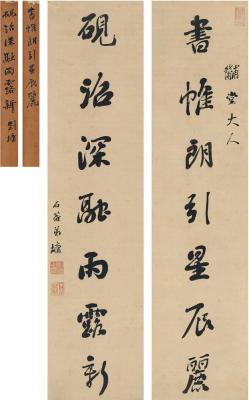 書帷朗引星辰麗
黼堂大人
硯沼深融雨露新
石菴弟墉
書帷朗引星辰麗
硯沼深融雨露新 劉墉